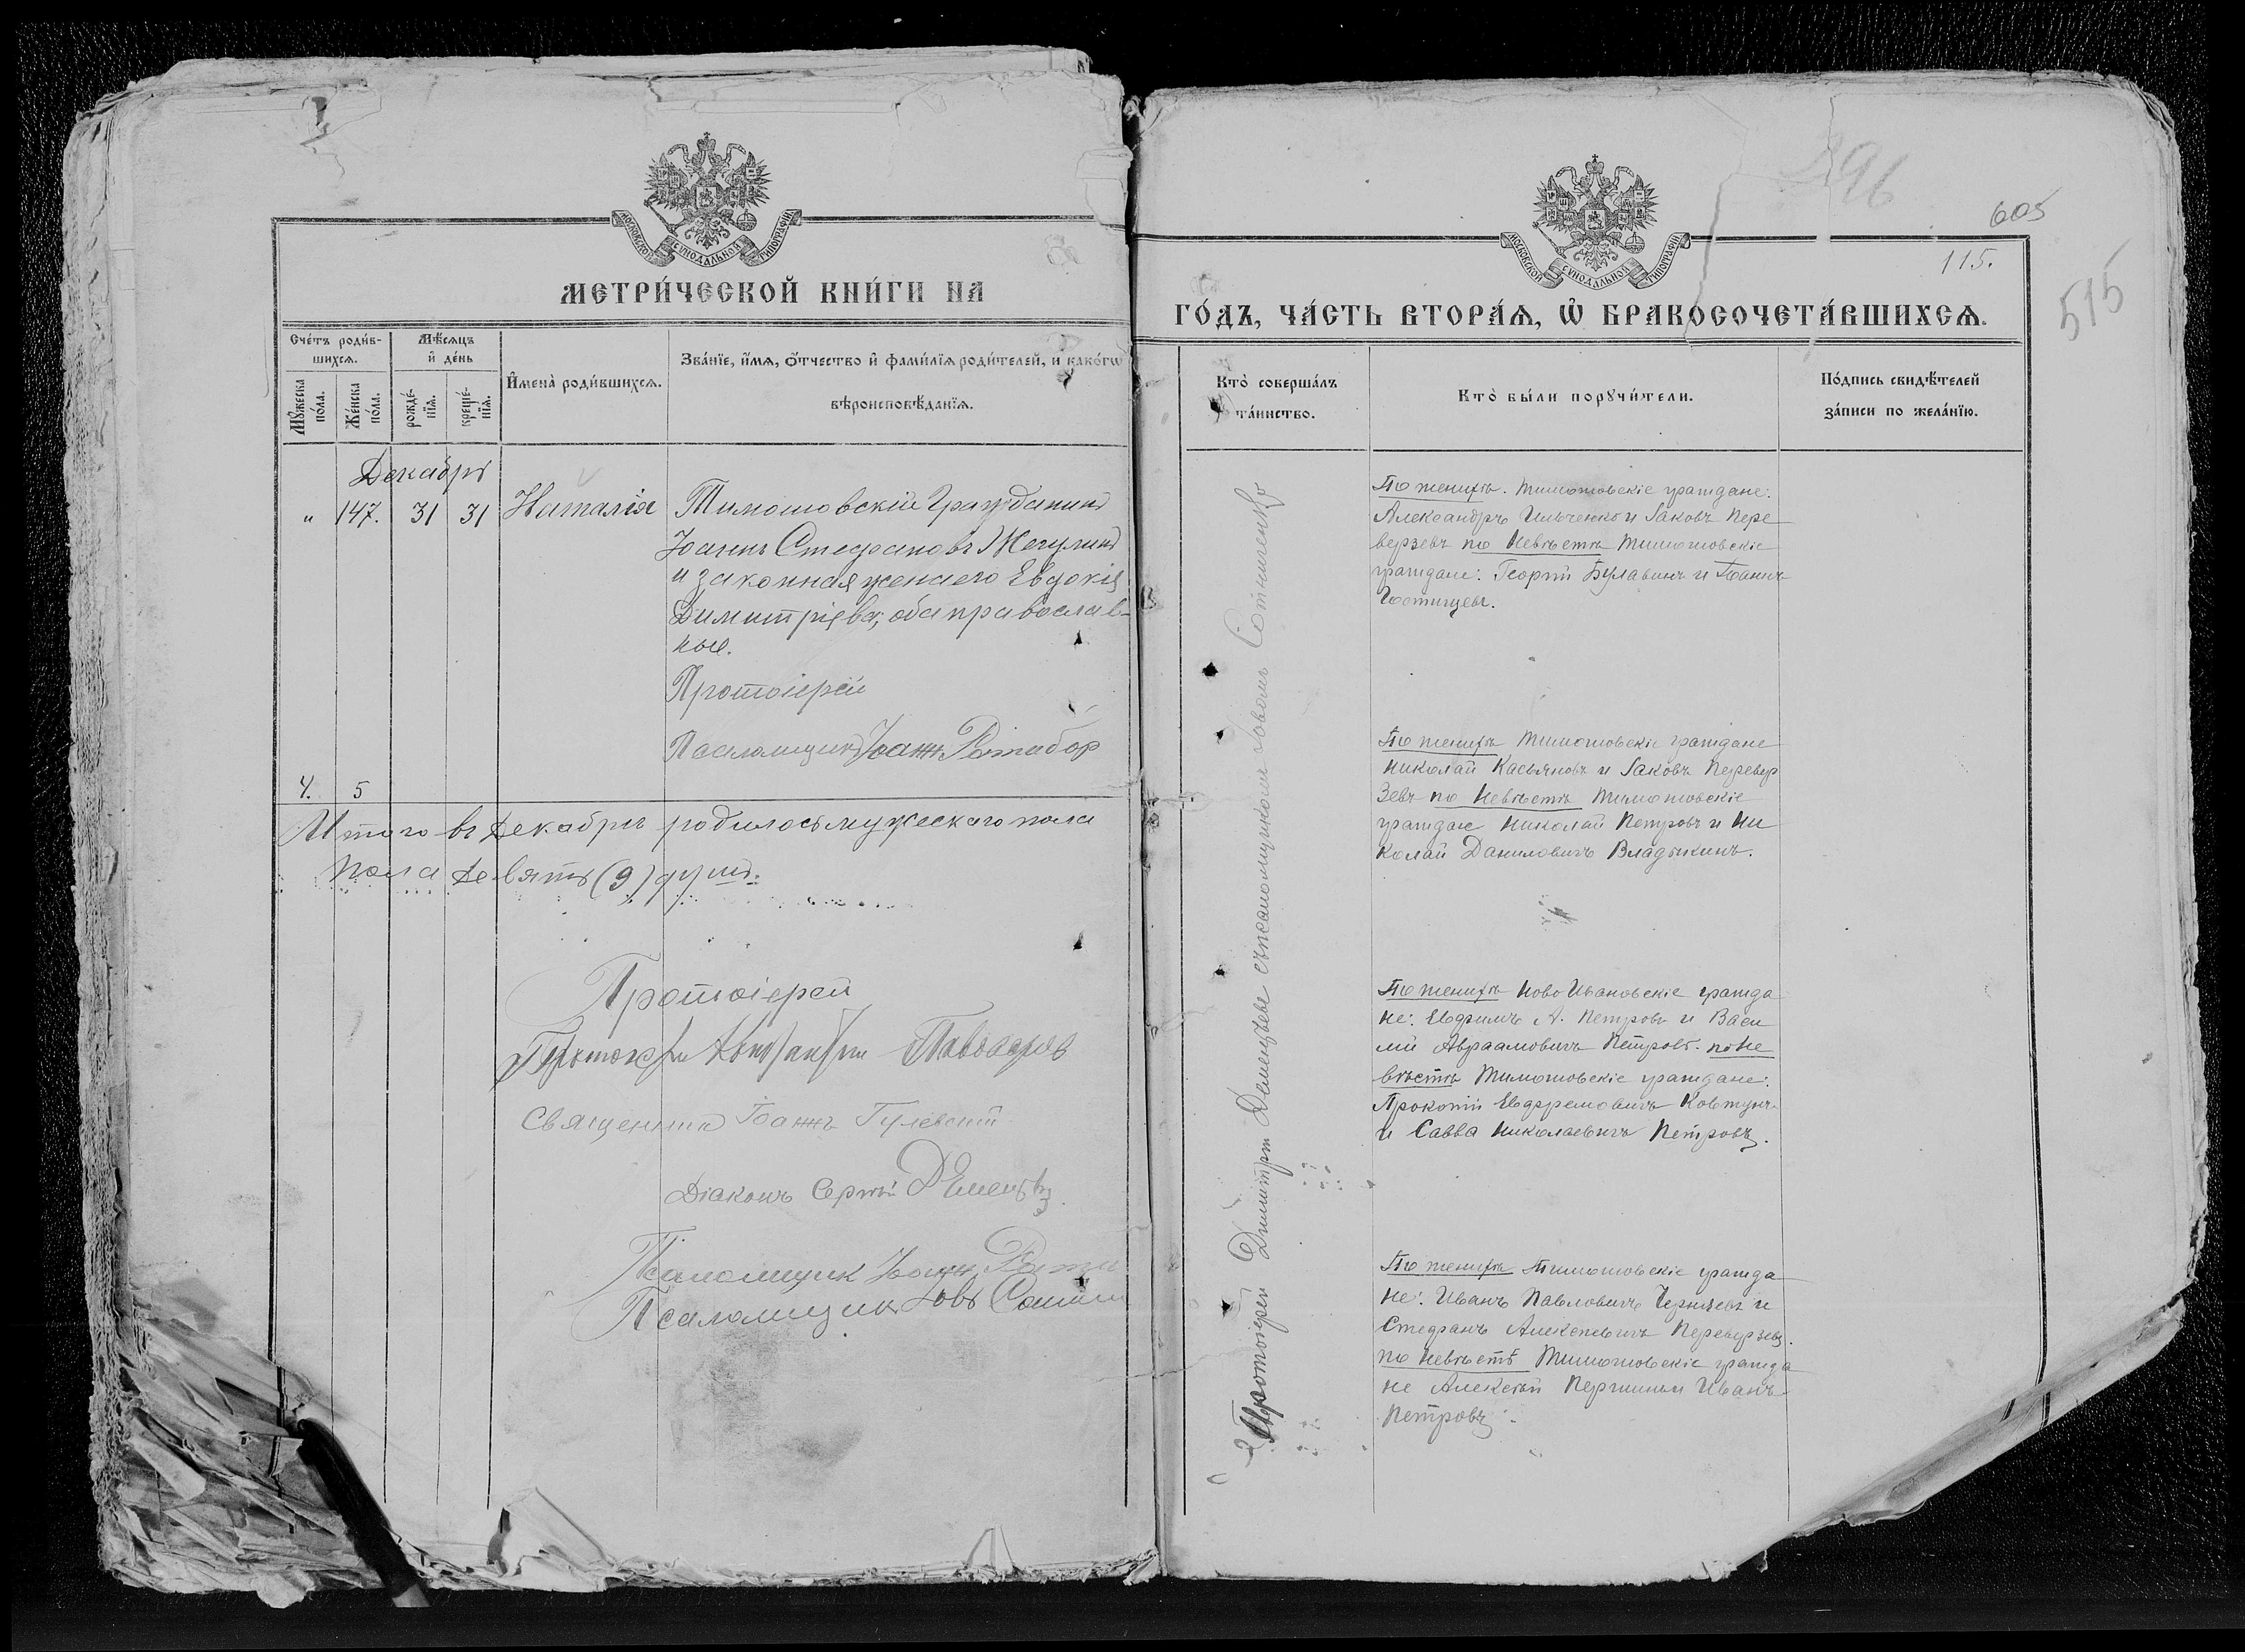 МОСКОВСКОЙ СѴНОДАЛЬНОЙ ТИПОГРАФІИ
МЕТРИ́ЧЕСКОЙ КНИ́ГИ НА
Сче́тъ роди́в-
шихсѧ.
Мѣ́сѧцъ
и҆ де́нь
Мꙋ́жеска
по́ла.
Же́нска
по́ла.
рожде́-
нїѧ.
креще́-
нїѧ.
И҆мена̀ роди́вшихсѧ.
Зва́нїе, и҆́мѧ, ѻ҆́тчество и҆ фами́лїѧ роди́телей, и како́гѡ
вѣроисповѣ́данїѧ.
Декабрь
" 147. 31 31 Наталія Тимошовскій Гражданинъ
Іоаннъ Стефановъ
и законная жена его Евдокія
Димитріева; оба православ-
ные.
Протоіерей
Псаломщикъ Іоаннъ
4. 5
Итого въ Декабрѣ родилось мужескаго пола
пола девять (9) душъ.
Протоіерей
Священникъ Іоаннъ Гулевскій
Діаконъ Сергѣй
Псаломщик Іоанн
Псаломщик Іовъ
396
605
115.
515
МОСКОВСКОЙ СѴНОДАЛЬНОЙ ТИПОГРАФІИ
ГО́ДЪ, ЧА́СТЬ ВТОРА́Ѧ, Ѽ БРАКОСОЧЕТА́ВШИХСѦ.
Кто̀ соверша́лъ
та́инство.
Кто̀ бы́ли порꙋчи́тели.
По́дпись свидѣ́телей
за́писи по жела́нїю.
Протоіерей Димитрій Деменцьеве съ псаломщикомъ Іовомъ Сотниченко
По женихѣ. Тимошовскіе граждане:
Александръ Ильченко и Іаковъ Пере
верзевъ по Невѣстѣ Тимошовскіе
граждане: Георгій Булавинъ и Іоаннъ
Гостищевъ.
По женихѣ Тимошовскіе граждане
Николай Касьяновъ и Іаковъ Перевер
зевъ по Невѣстѣ Тимошовскіе
граждане Николай Петровъ и Ни
колай Даниловичъ Владыкинъ.
По женихѣ Ново Ивановскіе гражда
не: Евфимъ А. Петровъ и Васи
лій Авраамовичъ Петровъ. по Не
вѣстѣ Тимошовскіе граждане:
Прокопій Евфремовичъ Ковтунъ
и Савва Николаевичъ Петровъ.
По женихѣ Тимошовскіе гражда
не: Иванъ Павловичъ Черняевъ и
Стефанъ Алексѣевичъ Переверзевъ.
по невѣстѣ Тимошовскіе гражда
не Алексѣй Иванъ
Петровъ.